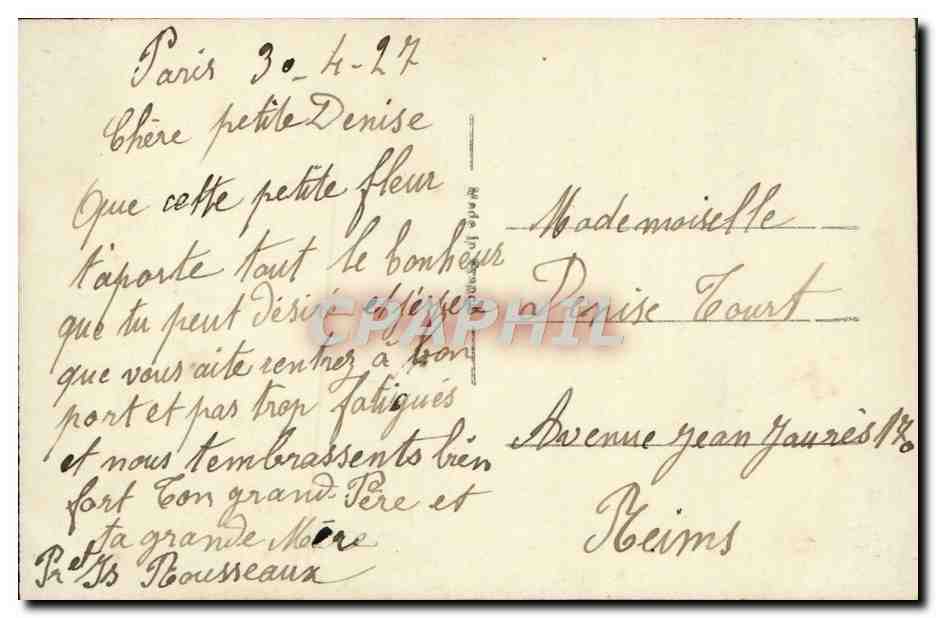 Paris 30-4-27
Chère petite Denise
Que cette petite fleur
t'aporte tout le bonheur
que tu peut désiré
que vous aite rentrez à bon
port et pas trop fatigués
et nous t'embrassents bien
fort Ton grand-Père et
ta grande Mère
Pr et Js Rousseaux
Made in
Mademoiselle
Denise Tourt
Avenue Jean Jaurès 170
Reims
CPAPHIL